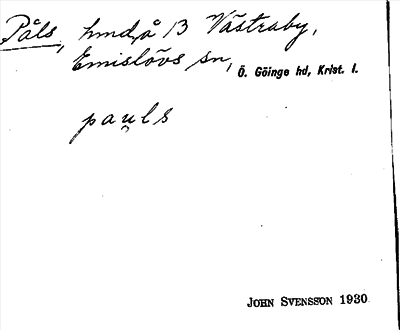 Påls, hmd, å 13 Västraby,
Emislövs sn, Ö. Göinge hd, Krist. l.
pau̯ls
JOHN SVENSSON 1930